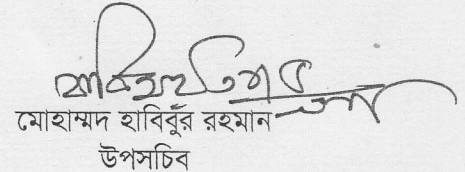 মোহাম্মদ হাবিবুর রহমান
উপসচিব